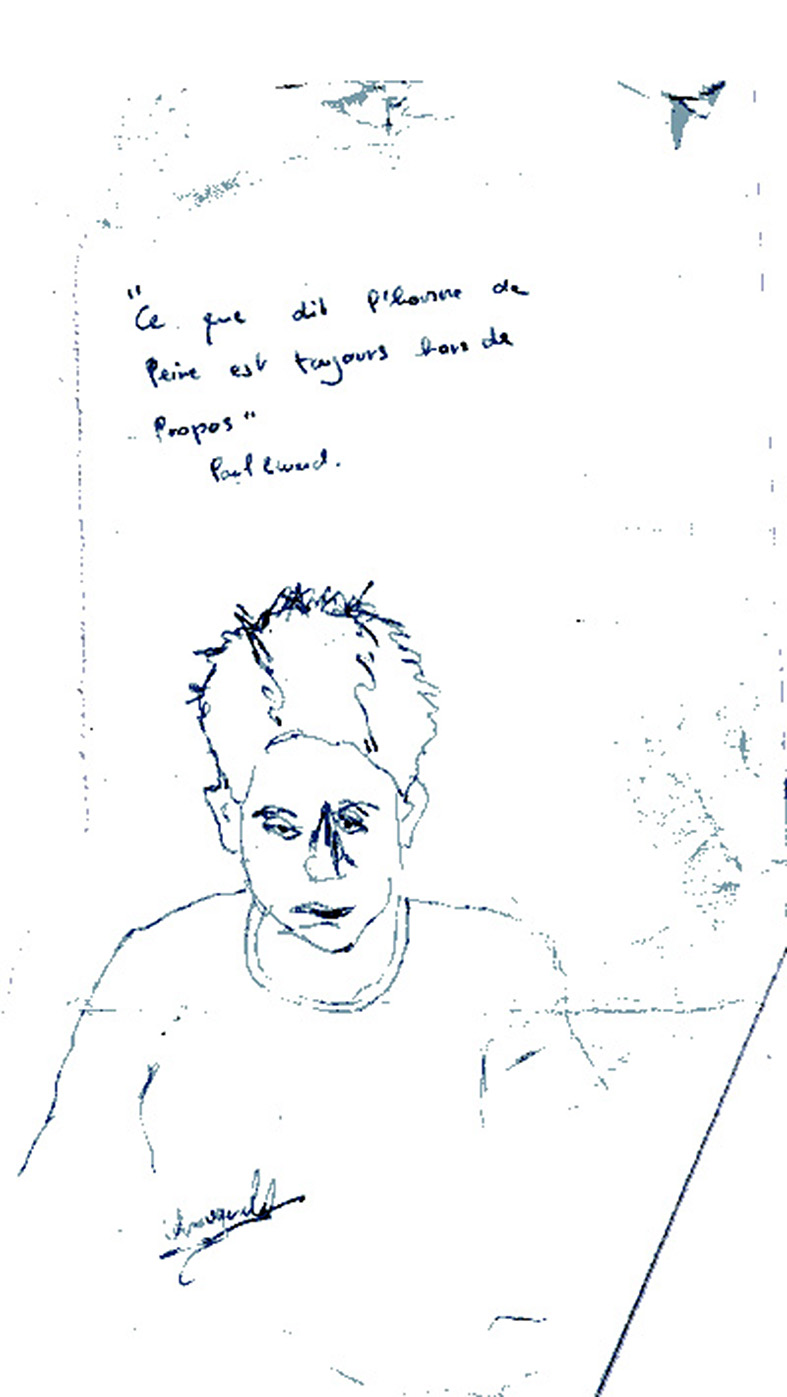 "Ce que dit l'homme de
Peine est toujours hors de
Propos"
Paul Eluard.